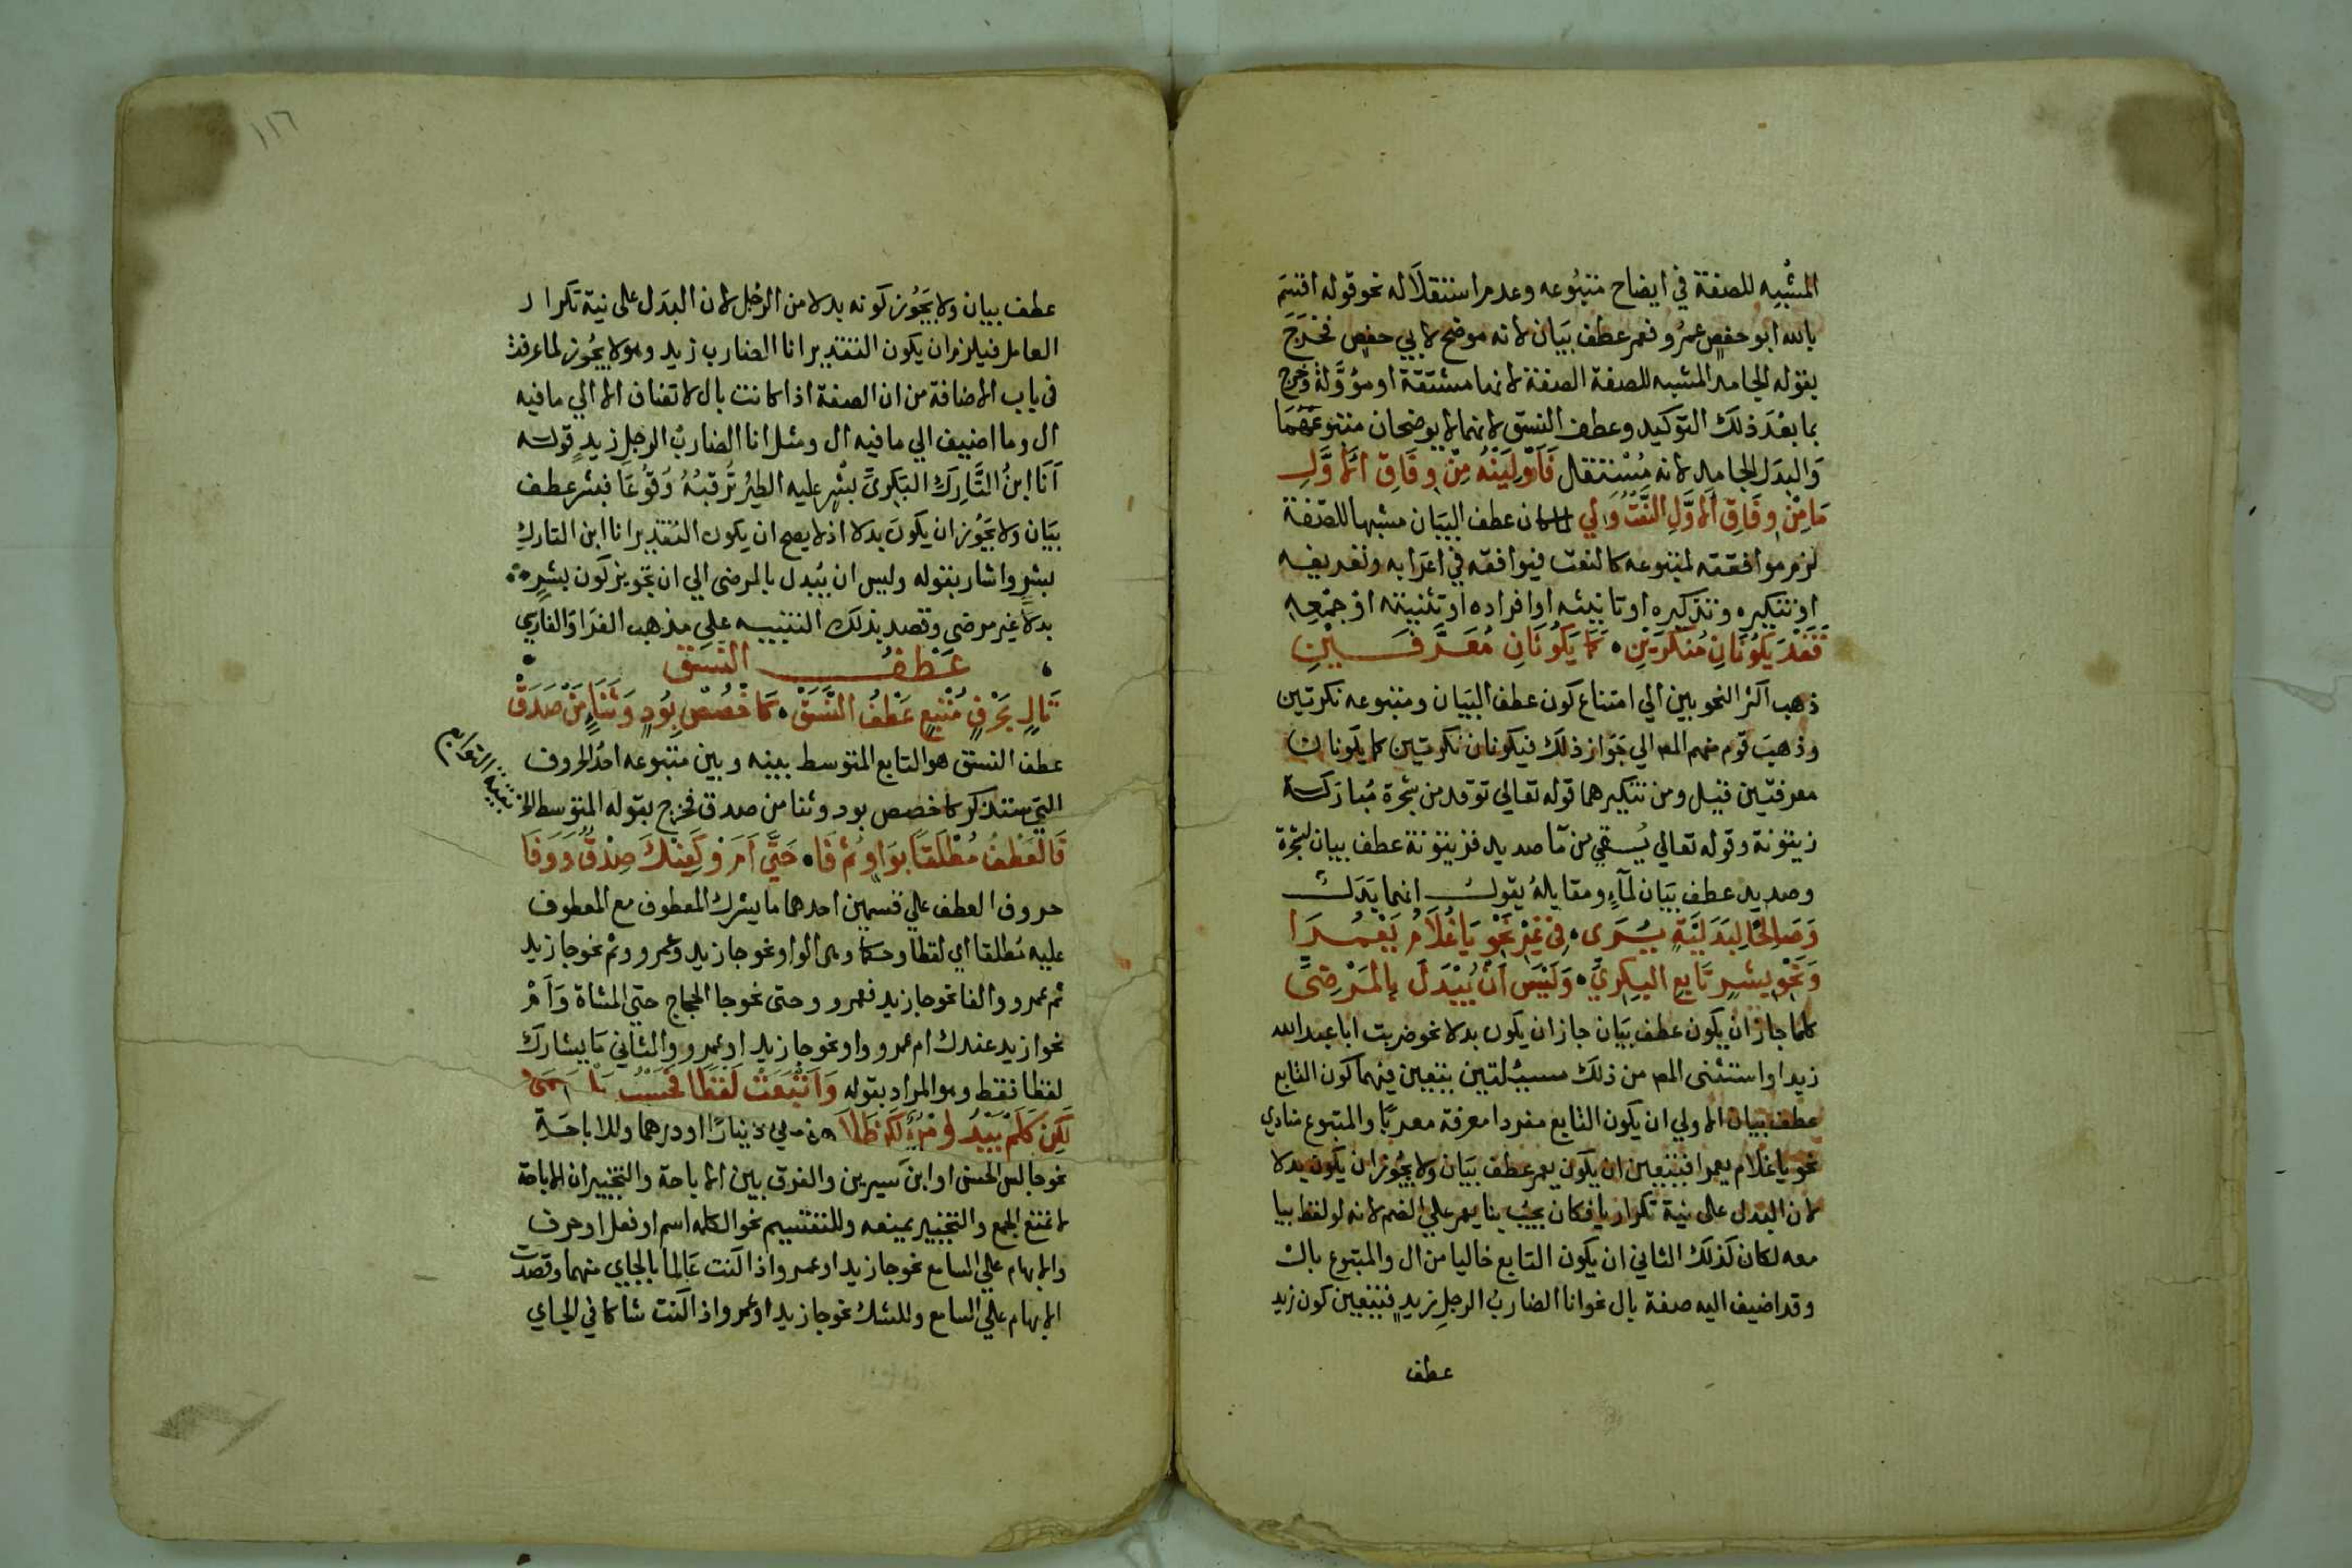 المشبه للصفة في ايضاح متبوعه وعدم استقلاله نحو قوله اقسم
بالله ابو حفص عمر و فعمر عطف بيان لانه موضح لابي حفص فخرج
بقوله الجامد المشبه للصفة الصفة لانها مشتقة او مؤولة وخرج
بما بعد ذلك التوكيد وعطف النسق لانهما لا يوضحان متبوعهما
والبدل الجامد لانه مستقل فَاَوْلِيَنْهُ مِنْ وِفَاقِ الاَوَّلِ
مَا مِنْ وِفَاقِ الاَوَّلِ النَّعْتُ وَلِي لما كان عطف البيان مشبها للصفة
لزم موافقته لمتبوعه كالنعت فيوافقه في اعرابه وتعريفه
او تنكيره وتذكيره او تانيثه او افراده او تثنيته او جمعه
فَقَدْ يَكُونَانِ مُنَكَّرَيْنِ • كَمَا يَكُونَانِ مُعَرَّفَيْنِ
ذهب اكثر النحويين الي امتناع كون عطف البيان ومتبوعه نكرتين
وذهب قوم منهم المص الي جواز ذلك فيكونان نكرتين كما يكونان
معرفتين قيل ومن تنكيرهما قوله تعالي توقد من شجرة مباركة
زيتونة وقوله تعالي يسقي من ما صديد فزيتونة عطف بيان لشجرة
وصديد عطف بيان لماء ومقابله يقول انما بدل
وَصَالِحًا لِبَدَلِيَّةٍ يُرَى • فِي غَيْرِ نَحْوِ يَا غُلَامُ يَعْمُرَا
وَنَحْوِ بِشْرٍ تَابِعِ البَكْرِيِّ • وَلَيْسَ اَنْ يُبْدَلَ بِالمَرْضِيِّ
كلما جاز ان يكون عطف بيان جاز ان يكون بدلا نحو ضربت ابا عبد الله
زيدا واستثنى المص من ذلك مسئلتين يتعين فيهما كون التابع
عطف بيان الاولي ان يكون التابع مفردا معرفة معربا والمتبوع منادي
نحو يا غلام يعمرا فيتعين ان يكون يعمر عطف بيان ولا يجوز ان يكون بدلا
لان البدل على نية تكرار يا فكان يجب بنا يعمر علي الضم لانه لو لفظ بيا
معه لكان كذلك الثاني ان يكون التابع خاليا من ال والمتبوع بال
وقد اضيف اليه صفة بال نحو انا الضارب الرجل زيد فيتعين كون زيد
عطف
١١٦
عطف بيان ولا يجوز كونه بدلا من الرجل لان البدل على نية تكرار
العامل فيلزم ان يكون التقدير انا الضارب زيد وهو لا يجوز لما عرفت
في باب الاضافة من ان الصفة اذا كانت بال لا تضاف الا الي ما فيه
ال وما اضيف الي ما فيه ال ومثل انا الضارب الرجل زيد قوله
اَنَا ابنُ التَّارِكِ البَكْرِيِّ بِشْرٍ عليه الطيرُ تَرقبهُ وُقُوعَا فبشر عطف
بيان ولا يجوز ان يكون بدلا اذ لا يصح ان يكون التقدير انا ابن التارك
بشر واشار بقوله وليس ان يبدل بالمرضي الي ان تجويز كون بشر
بدلا غير مرضي وقصد بذلك التنبيه على مذهب الفرا والفارسي
عَطْفُ النَّسَقِ
تَالٍ بِحَرْفٍ مُتْبِعٍ عَطْفُ النَّسَقْ • كَاخْصُصْ بِوُدٍ وَثَنَاءٍ مَنْ صَدَقْ
عطف النسق هو التابع المتوسط بينه وبين متبوعه احد الحروف
التي ستذكر كاخصص بود وثنا من صدق فخرج بقوله المتوسط الخ
بقية التوابع
فَالعَطْفُ مُطْلَقًا بِوَاوٍ ثُمَّ فَا • حَتَّى اَمَ اوْ كَفِيْكَ صِدْقٌ وَوَفَا
حروف العطف علي قسمين احدهما ما يشرك المعطوف مع المعطوف
عليه مطلقا اي لفظا وحكما وهي الواو نحو جا زيد وعمرو وثم نحو جا زيد
ثم عمرو والفا نحو جا زيد فعمرو وحتى نحو جا الحجاج حتى المشاة وَاَمْ
نحو ازيد عندك ام عمرو واو نحو جا زيد او عمرو والثاني ما يشارك
لفظا فقط وهو المراد بقوله وَاَتْبَعَتْ لَفْظًا فَحَسْبُ بَلْ وَلَا
لَكِنْ كَلَمْ يَبْدُ امْرُؤٌ لَكِنْ طَلَا دينارا او درهما وللاباحة
نحو جالس الحسن او ابن سيرين والفرق بين الاباحة والتخيير ان الاباحة
لا تمنع الجمع والتخيير يمنعه وللتقسيم نحو الكلمه اسم او فعل او حرف
والابهام علي السامع نحو جا زيد او عمرو اذا كنت عالما بالجاي منهما وقصدت
الابهام علي السامع وللشك نحو جا زيد او عمرو اذا كنت شاكا في الجاي